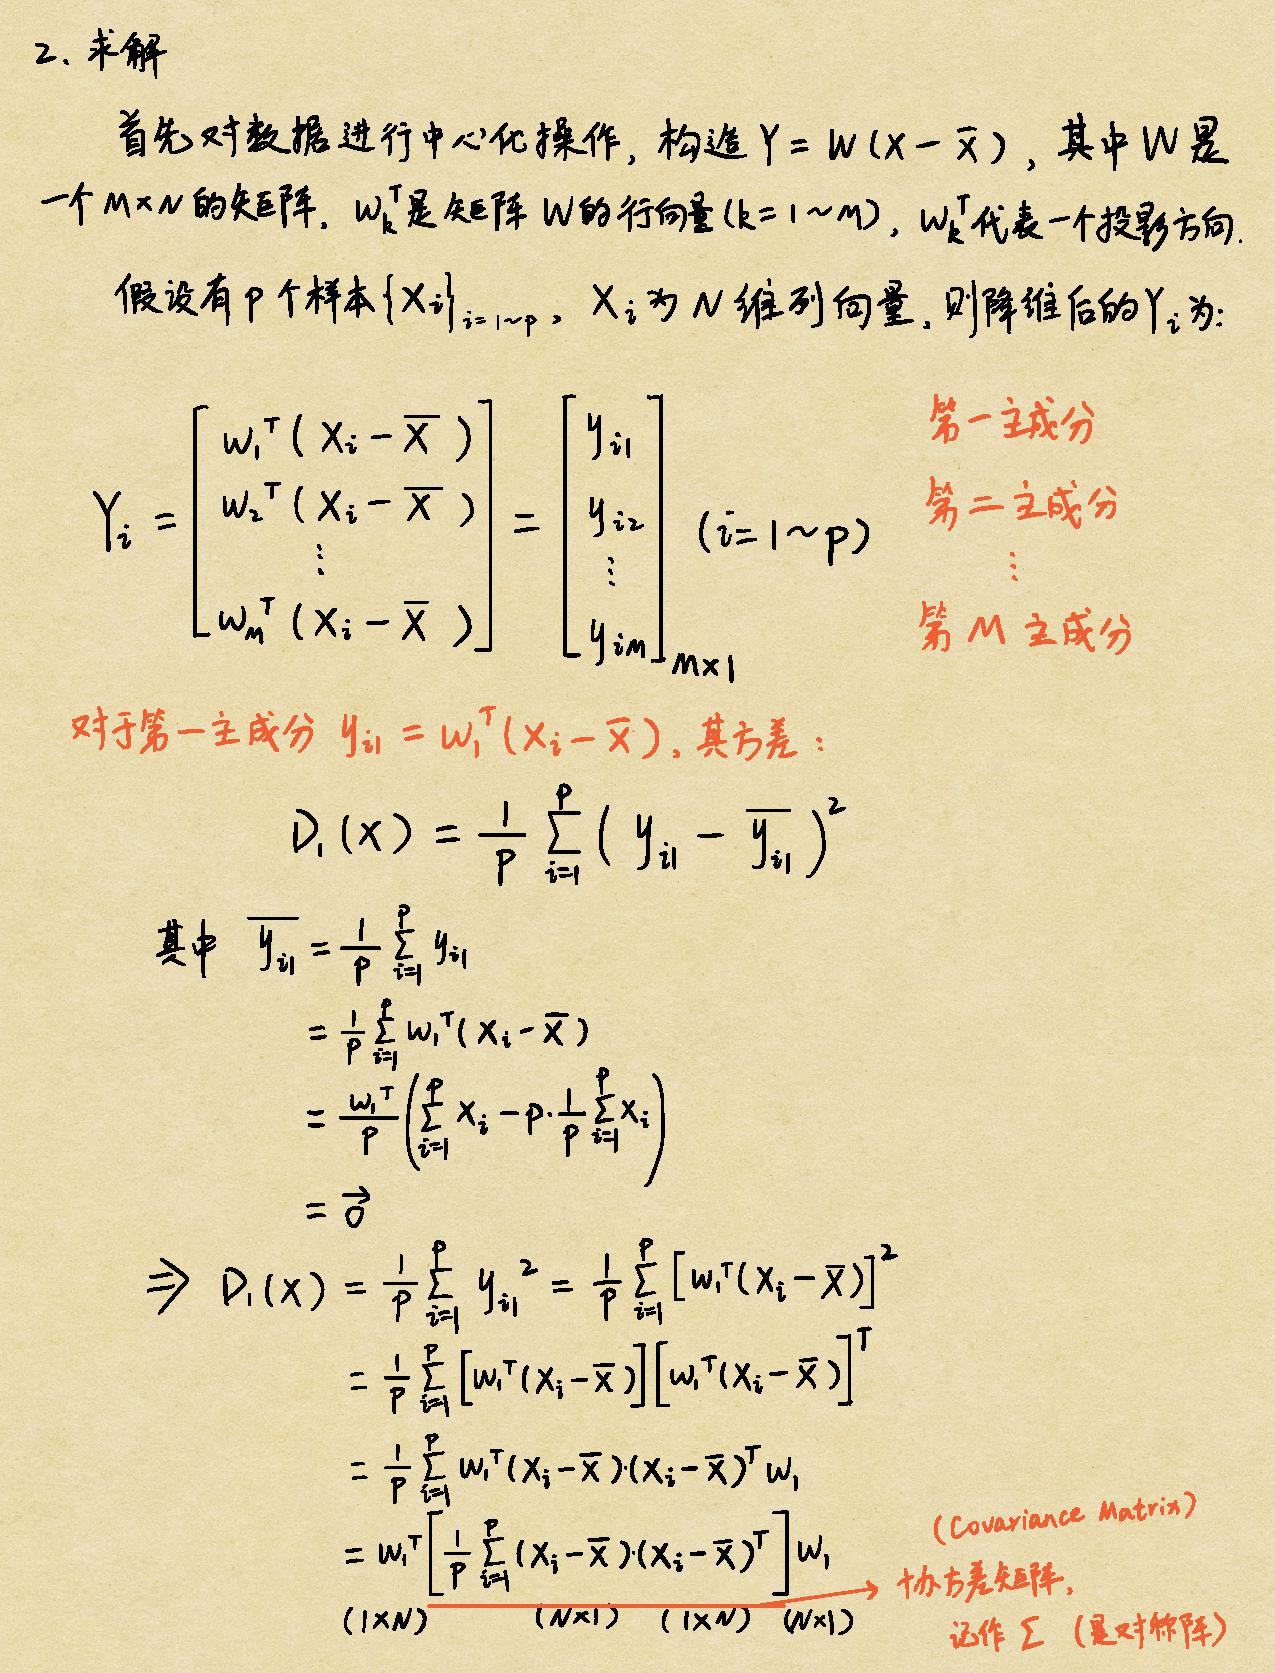 2、求解
首先对数据进行中心化操作，构造 Y = W(X − X̄)，其中 W 是
一个 M×N 的矩阵，w_k^T 是矩阵 W 的行向量(k=1~M)，w_k^T 代表一个投影方向.
假设有 P 个样本{X_i}_{i=1~p}，X_i 为 N 维列向量，则降维后的 Y_i 为:
Y_i = [w_1^T(X_i − X̄) w_2^T(X_i − X̄) ⋮ w_M^T(X_i − X̄)] = [y_{i1} y_{i2} ⋮ y_{iM}]_{M×1} (i=1~p)
第一主成分
第二主成分
⋮
第 M 主成分
对于第一主成分 y_{i1} = w_1^T(X_i − X̄)，其方差:
D_1(X) = \frac{1}{P} \sum_{i=1}^{P} (y_{i1} − \overline{y_{i1}})^2
其中 \overline{y_{i1}} = \frac{1}{P} \sum_{i=1}^{P} y_{i1}
= \frac{1}{P} \sum_{i=1}^{P} w_1^T(X_i − X̄)
= \frac{w_1^T}{P} (\sum_{i=1}^{P} X_i − P·\frac{1}{P} \sum_{i=1}^{P} X_i)
= \vec{0}
⇒ D_1(X) = \frac{1}{P} \sum_{i=1}^{P} y_{i1}^2 = \frac{1}{P} \sum_{i=1}^{P} [w_1^T(X_i − X̄)]^2
= \frac{1}{P} \sum_{i=1}^{P} [w_1^T(X_i − X̄)][w_1^T(X_i − X̄)]^T
= \frac{1}{P} \sum_{i=1}^{P} w_1^T(X_i − X̄)·(X_i − X̄)^T w_1
= w_1^T [\frac{1}{P} \sum_{i=1}^{P} (X_i − X̄)·(X_i − X̄)^T] w_1
(1×N) (N×1) (1×N) (N×1)
(Covariance Matrix)
协方差矩阵，
记作 Σ (是对称阵)